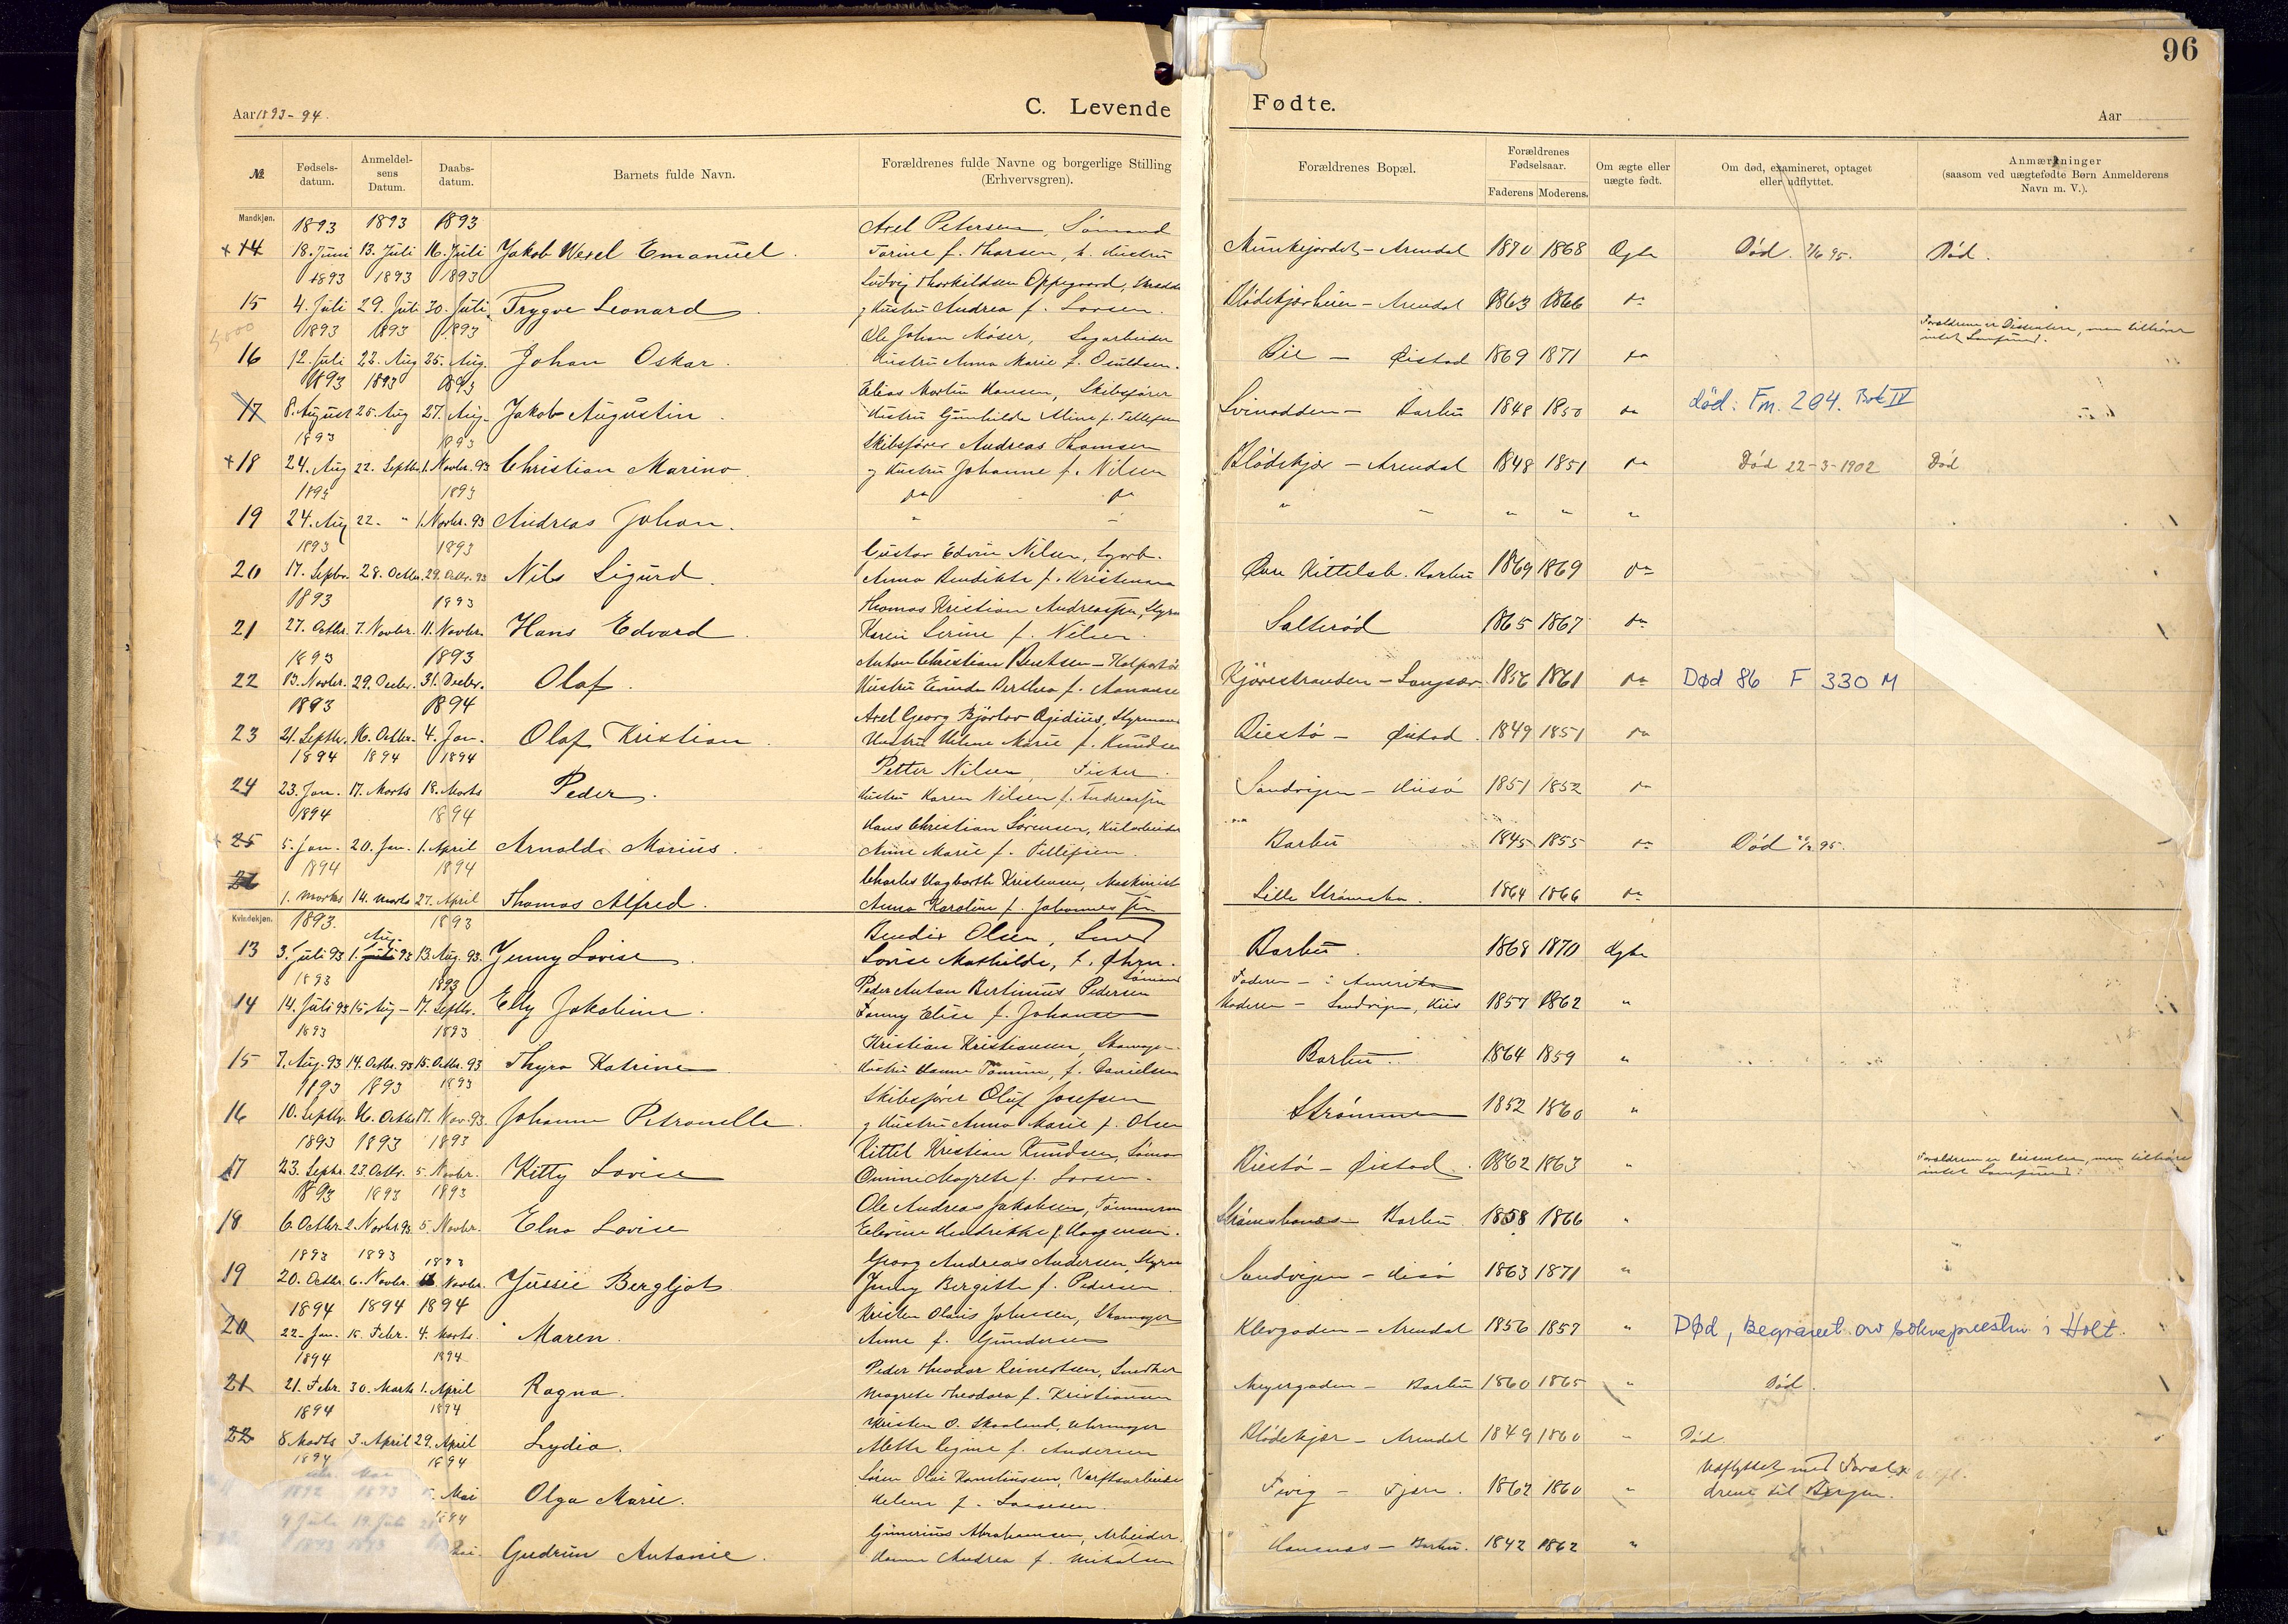 96
C. Levende Fødte.
Aar 1893-94.
Aar
№
Fødsels-datum.
Anmeldel-sens Datum.
Daabs-datum.
Barnets fulde Navn.
Forældrenes fulde Navne og borgerlige Stilling (Erhvervsgren).
Forældrenes Bopæl.
Forældrenes Fødselsaar.
Faderens Moderens.
Om ægte eller uægte født.
Om død, examineret, optaget eller udflyttet.
Anmærkninger (saasom ved uægtefødte Børn Anmelderens Navn m. V.).
Mandkjøn.
1893 1893 1893 Axel Petersen, Sømand
14 18. Juni 13. Juli 16. Juli Jakob Wexel Emanuel. Torine f. Thorsen, h. Hustru Arendal 1870 1868 Ægte Død Død.
1893 1893 1893 Ludvig Thorkildsen Oppegaard
15 4. Juli 29. Juli 30. Juli Trygve Leonard Hustru Andrea f. Larsen. Blødekjær Arendal 1863 1866 do
1893 1893 1893 Ole Johan Møser, Sagarbeider
16 12. Juli 22. Aug 25. Aug. Johan Oskar. Hustru Anna Marie f. Osuldsen. Bie - Øistad 1869 1871 do Forældrene er Dissentere, men tilhører intet Samfund.
1893 1893 1893 Elias Martin Hansen, Skibsfører
17 8. August 25. Aug 27. Aug. Jakob Augustin. Hustru Gunhilde Aline f. Tellefsen Svinodden - Barbu 1848 1850 do død: Fm. 204. Bok IV
1893 1893 Skibsfører Andreas Thomsen
18 24. Aug 22. Septbr. 1. Novbr. 93 Christian Marino og Hustru Johanne f. Nilsen Blødekjær - Arendal 1848 1851 do Død 22-3-1902 Død
1893 1893 do do
19 24. Aug 22. " 1. Novbr. 93 Andreas Johan. " " " " " "
1893 1893 Gustav Edvin Nilsen
20 17. Septbr. 28. Octbr. 29. Octbr. 93 Nils Sigurd. Anna Bendikte f. Kristensen Barbu 1869 1869 do
1893 1893 Thomas Kristian Andreassen
21 27. Octbr. 7. Novbr. 11. Novbr. Hans Edvard. Karen Serine f. Nilsen. Salterød 1865 1867 do
1893 1893 Anton Christian Bentsen - Kolportør
22 13. Novbr. 29. Decbr. 31. Decbr. Olaf. Hustru Berthea f. 1856 1861 do Død 86 F 330 M
1893 1894 Axel Georg Ægidius, Styrmand
23 21. Septbr. 16. Octbr. 4. Jan. Olaf Kristian. Hustru Helene Marie f. Knudsen Biestø - Øistad. 1849 1851 do
1894 1894 1894 Petter Nilsen, Fisker.
24 23. Jan. 17. Marts 18. Marts Peder. Hustru Karen Nilsen f. Andreassen Sandvigen - Hisø 1851 1852 do
1894 1894 Hans Christian Sørensen, Kularbeider
25 5. Jan. 20. Jan. 1. April Arnolde Marius. Anne Marie f. Tellefsen. Barbu 1845 1855 do Død
1894 1894 Charles Kristensen, Maskinist
26 1. Marts 14. Marts 27. April Thomas Alfred. Anna Karoline f. Johannessen Lille 1864 1866 do
Kvindekjøn.
1893. 1893 Bendix Olsen, Smed
13 3. Juli 93 1. Aug 93 13. Aug. 93. Jenny Lovise. Lovise Mathilde, f. Barbu. 1868 1870 Ægte
1893 1893 Peder Anton Bertinius Pedersen Sømand Faderen - i Amerika
14 14. Juli 93 15. Aug 17. Septbr. Elly Jakobine. Fanny Elise f. Johansen Moderen - Sandvigen, 1857 1862 "
1893 1893 Kristian Kristiansen
15 7. Aug. 93 14. Octbr. 93 15. Octbr. 93 Thyra Katrine Hustru Hanne f. Danielsen Barbu 1864 1859 "
1893 1893 1893 Skibsfører Oluf Josefsen
16 10. Septbr. 16. Octbr. 17. Nov. 93. Johanne Petronelle. og Hustru Anna Marie f. Olsen Strømmen 1852 1860 "
1893 1893 1893 Kittel Kristian Knudsen, Sømand
17 23. Septbr. 23 Octbr. 5. Novbr. Kitty Lovise Magrete f. Larsen. Biestø - Øistad. 1862 1863 " Forældrene er Dissentere, men tilhører intet Samfund.
1893 1893 1893 Ole Andreas Jakobsen, Tømmerm
18 6. Octbr. 2. Novbr. 93 5. Novbr. Elna Lovise Hendrikke f. Barbu 1858 1866 "
1893 1893 1893 Georg Andreas Andersen, Styrm
19 20. Octbr. 6. Novbr. Novbr. Jussie Bergljot Jenny Bergitte f. Pedersen. Sandvigen - Hisø 1863 1871 "
1894 1894 1894 Kristen Olaus Johnsen, Skomager
20 22. Jan. 15. Febr. 4. Marts. Maren. Anne f. Gundersen Arendal 1856 1857 " Død, Begravet av soknepresten i Holt.
1894 1894 Peder Theodor Reinertsen, Snedker
21 21. Febr. 30. Marts 1. April Ragna. Magrete Theodora f. Kristiansen Meyergaden - Barbu 1860 1865 " Død.
1894 1894 Kristen O. Skaaland, Uhrmager
22 8 Marts 3. April 29. April Lydia. Mette f. Andersen Blødekjær - Arendal 1849 1860 " Død.
1894 1894 Søren Olai Værftsarbeider
Mai Olga Marie. Helene f. - Fjære. 1862 1860 " Udflyttet med Forældrene til Bergen.
1894 Gunerius Abrahamsen, Arbeider.
Gudrun Antonie. Hanne Andrea f. Barbu. 1842 1862 "